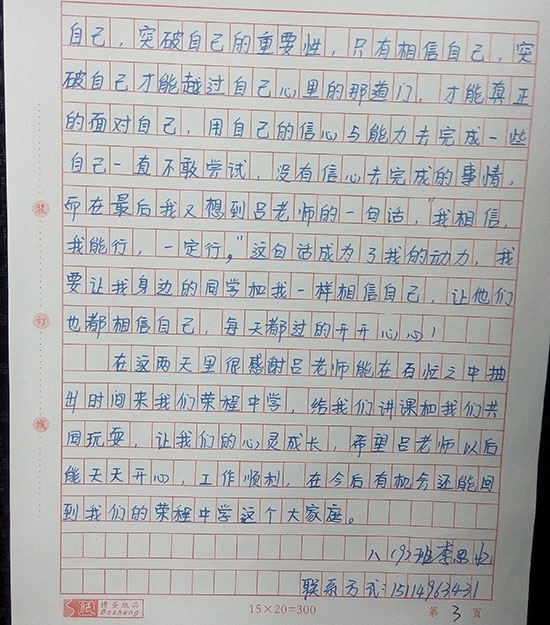 自己，突破自己的重要性，只有相信自己，突
破自己才能越过自己心里的那道门，才能真正
的面对自己，用自己的信心与能力去完成一些
自己一直不敢尝试，没有信心去完成的事情，
而在最后我又想到吕老师的一句话，“我相信，
我能行，一定行，”这句话成为了我的动力，我
要让我身边的同学和我一样相信自己，让他们
也都相信自己，每天都过的开开心心！
在这两天里很感谢吕老师能在百忙之中抽
出时间来我们荣程中学，给我们讲课和我们共
同玩耍，让我们的心灵成长，希望吕老师以后
能天天开心，工作顺利，在今后有机会还能回
到我们的荣程中学这个大家庭。
八（9）班李思
联系方式：15114963431
装
订
线
纸 博圣纸品 Bosheng
15×20=300
第 3 页